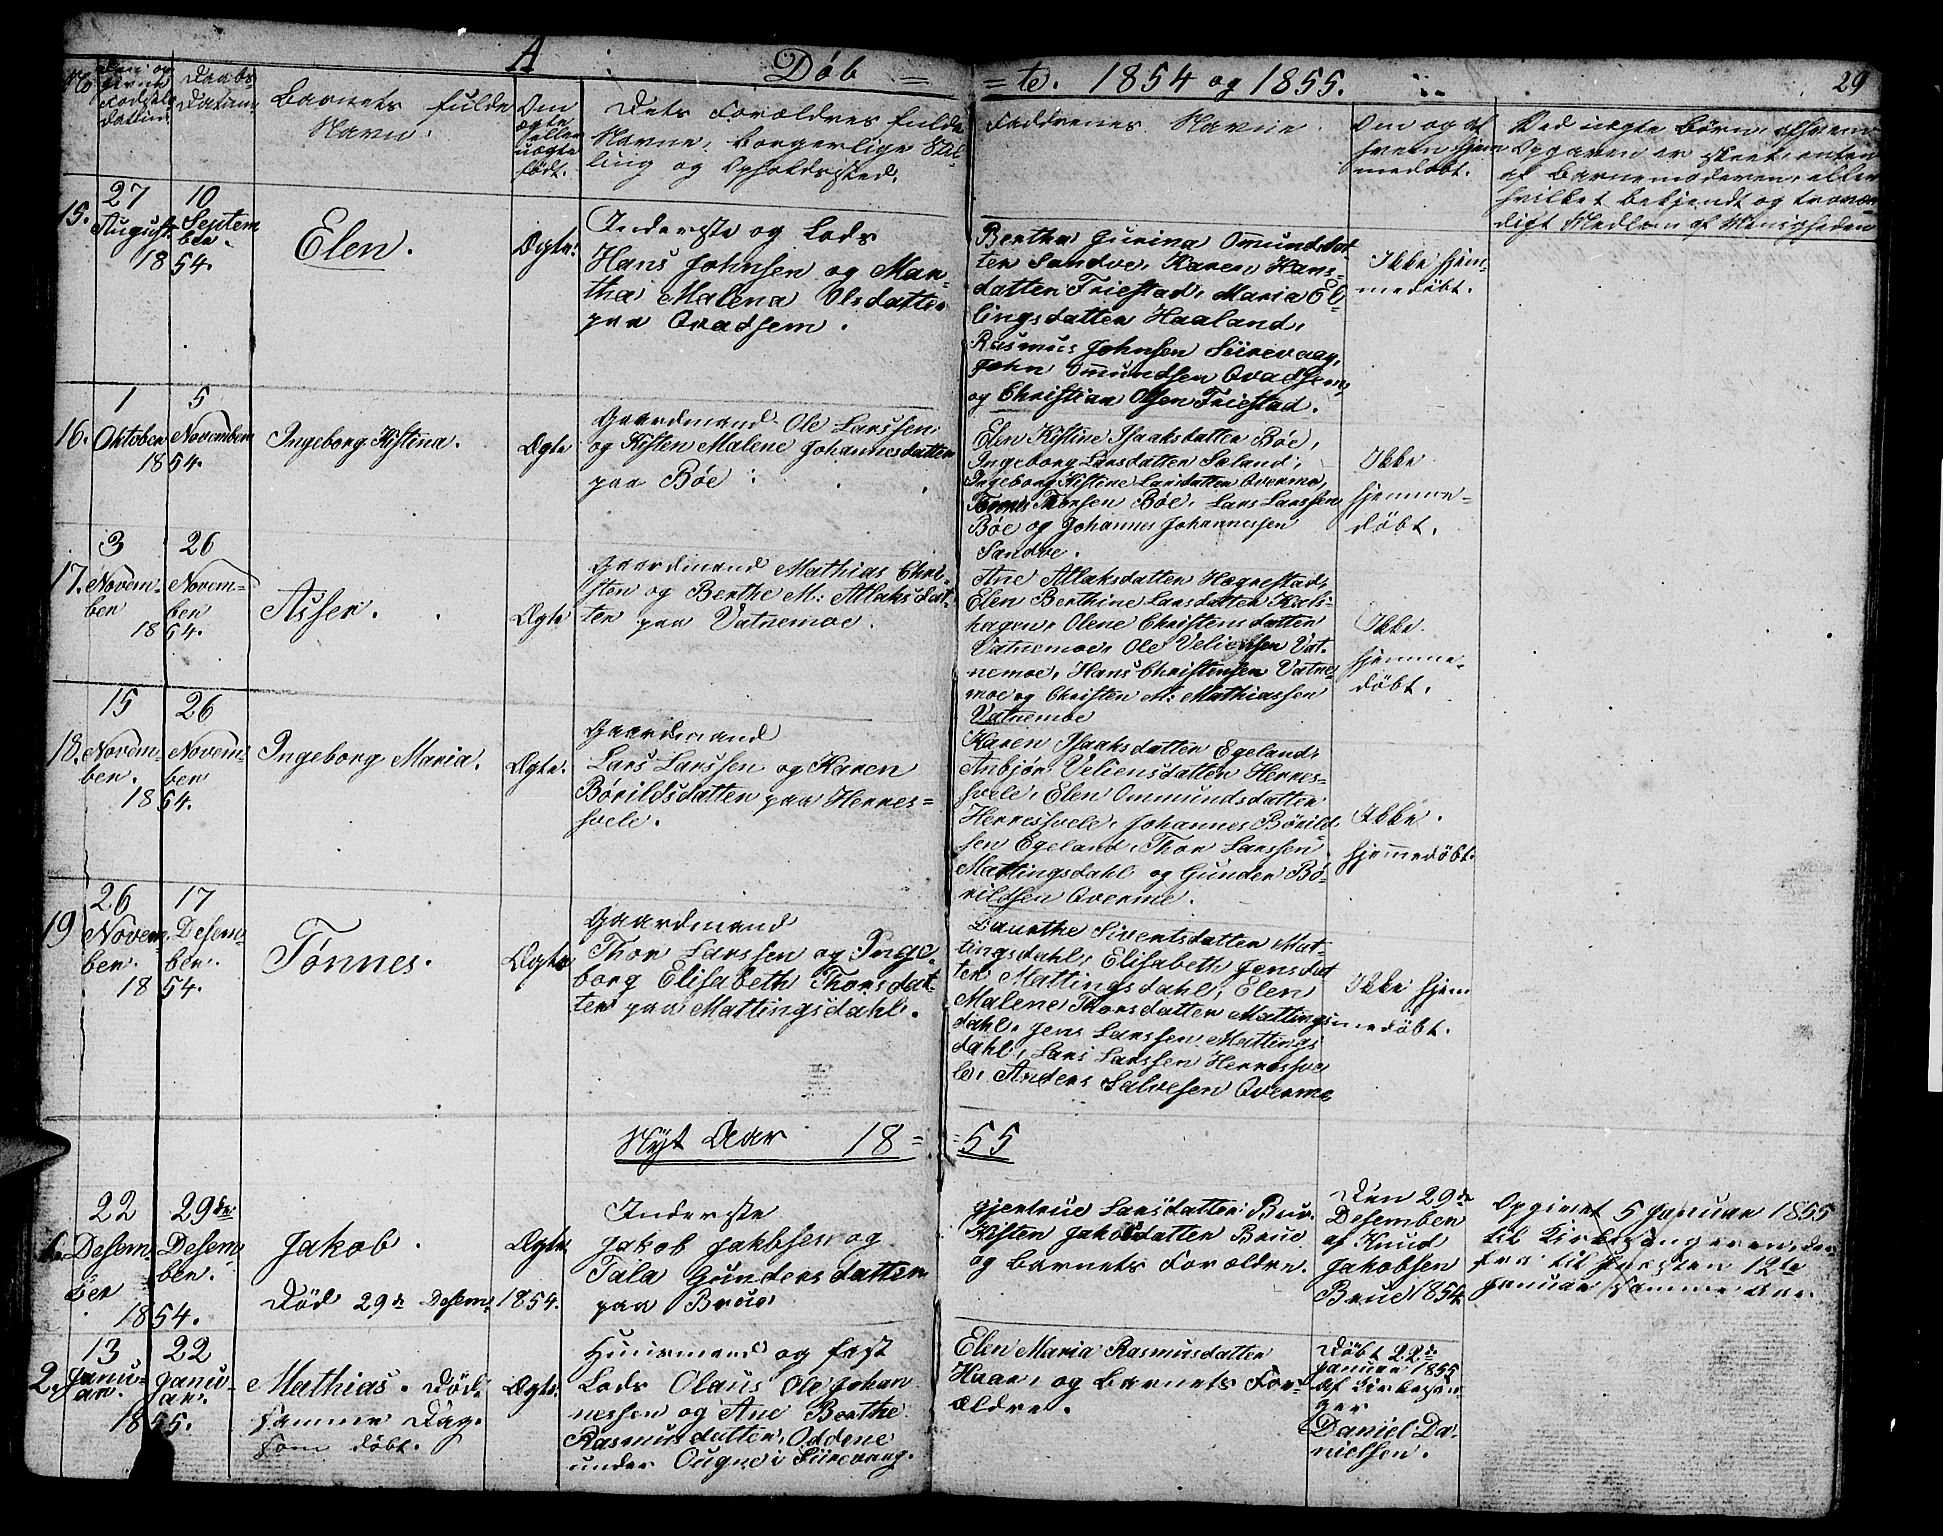 A
Døb = = te. 1854 og 1855.
29
No
Daabs
Datum
Barnets fulde
Navn.
Om
ægte
eller
uægte
født.
Dets Forældres fulde
Navne, borgerlige Stil-
ling og Opholdssted.
Faddrenes Navne
Om og af
hvem hjem
medøbt.
Ved uægte Børn, afhvem
Opgaven er skeet, enten
af Barnemoderen, eller
hvilket bekjendt og troværdigt Medlem af Menigheden
15.
27
August
10
Septem
ber.
1854.
Elen.
Ægte.
Inderste og Lods
Hans Johnsen og Mar-
tha Malena Olsdatter
paa Qvadsem.
Bertha Gurina Omundsdat-
ter Sandve, Karen Hans-
datter Friestad, Maria El-
lingsdatter Haaland,
Rasmus Johnsen Siirevaag,
John Ommundsen Qvadsem,
og Christian Olsen Friestad.
Ikke hjem-
medøbt.
16.
1
Oktober
5
November
1854.
Ingeborg Kistina.
Ægte
Gaardmand Ole Larssen
og Kisten Malene Johannesdatter
paa Bøe
Elen Kistine Isaaksdatter Bøe,
Ingeborg Larsdatter Sæland,
Ingeborg Kistine Larsdatter Qverme,
Tønnes Thorsen Bøe, Lars Larssen
Bøe og Johannes Johannessen
Sandve.
Ikke
hjemme-
døbt.
17.
3
Novem-
ber
26
Novem-
ber
1854.
Asser.
Ægte
Gaardmand Mathias Chri-
sten og Berthe M: Atlaksdat-
ter paa Vatnemoe.
Ane Atlaksdatter Hægrestad,
Elen Berthine Larsdatter Kals-
hagen, Olene Christensdatter
Vatnemoe, Ole Veliensen Vat-
nemoe, Hans Christensen Vatne-
moe og Christen M: Mathiassen
Vatnemoe
Ikke
hjemme-
døbt.
18.
15
Novem-
ber.
26
Novem-
ber
1854.
Ingeborg Maria.
Ægte.
Gaardmand
Lars Larssen og Karen
Børildsdatter paa Herres=
hvele.
Karen Isaaksdatter Egeland,
Anbjør Veliensdatter Herres-
hvele, Elen Ommundsdatter
Herreshvele, Johannes Børild-
sen Egeland, Thor Larssen
Mattingsdahl og Gunder Bø-
rildsen Qverme.
Ikke
hjemmedøbt.
19
26
Novem
ber.
17
Desem-
ber.
1854.
Tønnes.
Ægte
Gaardmand
Thor Larssen og Inge-
borg Elisabeth Thorsdat-
ter paa Mattingsdahl.
Laurthe Siventsdatter Mat-
tingsdahl, Elisabeth Jensdat
ter Mattingsdahl, Elen
Malene Thorsdatter Mattings
dahl, Jens Larssen Mattings
dahl, Lars Larssen Herreshve
le, Anders Salvesen Qverme
Ikke hjem
medøbt.
Nÿt Aar 18= =55
1.
22
Desem
ber
29de
Desem
ber.
1854.
Jakob.
Død 29de Desem. 1854.
Ægte
Inderste
Jakob Jakobsen og
Tala Gundersdatter
paa Brue
Gjertrue Larsdatter Brue
Kisten Jakobsdatter Brue
og Barnets Forældre.
Den 29de
Desember
af Knud
Jakobsen
Brue 1854
Opgivet 5 Januar 1855
til Kirkesangeren, der
fra til Presten 12te
Januar samme Aar.
2.
13
Janu-
ar.
22
Janu-
ar.
1855.
Mathias. Død
samme Dag
som døbt.
Ægte
Huusmand og fast
Lods Olaus Ole Johan
nessen og Ane Berthe
Rasmusdatter, Oddene
under Ougne i Siirevaag.
Elen Maria Rasmusdatter
Haar, og Barnets For-
ældre.
Døbt 22de
Januar 1855
af Kirkesan-
ger
Daniel Da-
nielsen.